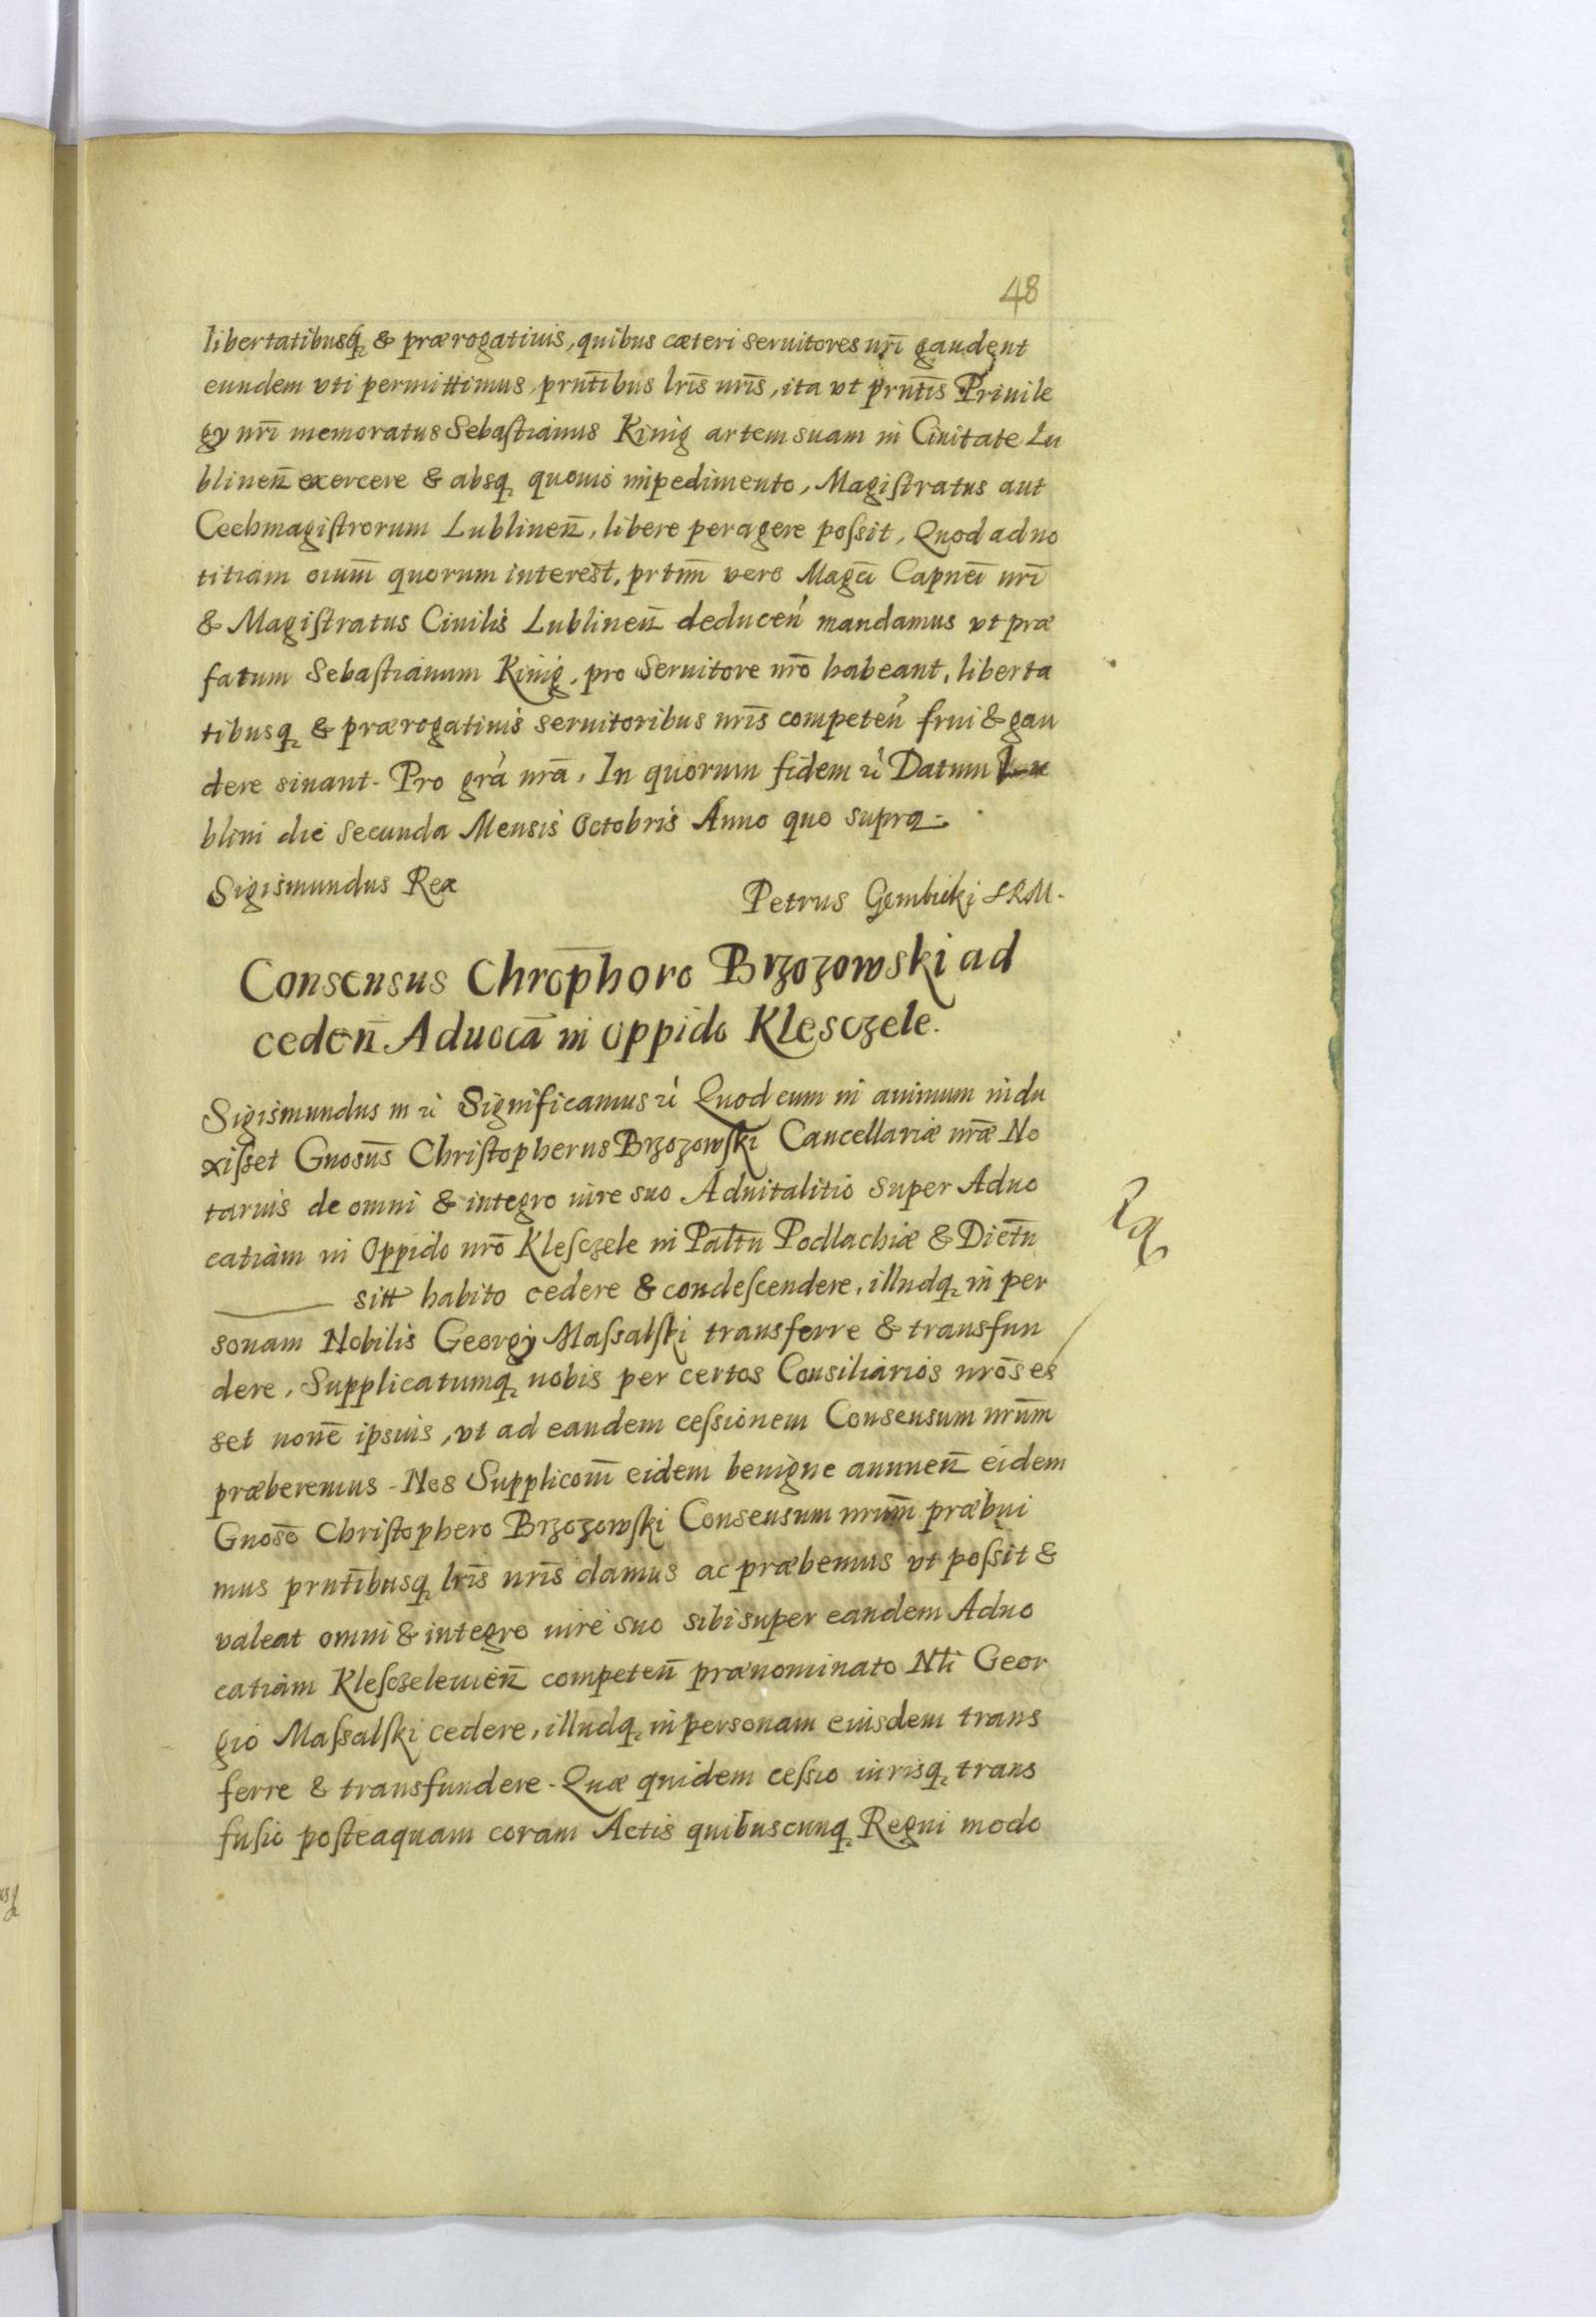 48
libertatibusq₂ & prærogatiuis, quibus cæteri seruitores nr̄i gaudent
eundem vti permittimus prntībus lrīs nrīs, ita vt prntīs Priuile
gy nrī memoratus Sebaſtianus Kinig artem suam in Ciuitate Lu
blineñ exercere & absq₂ quouis impedimento, Magiſtratus aut
Cechmagiſtrorum Lublineñ, libere peragere poſsit, Quod ad no
titiam oium̄ quorum interest, prtim̄ vero Magcī Capnei nrī
& Magiſtratus Ciuilis Lublineñ deduceń mandamus vt præ
fatum Sebaſtianum Kinig, pro Seruitore nrō habeant, liberta
tibusq₂ & prærogatiuis seruitoribus nrīs competeń frui & gau
dere sinant. Pro grà nrā, In quorum fidem &c Datum Lu
blini die Secunda Mensis Octobris Anno quo supra.
Sigismundus Rex
Petrus Gembicki SRM.
Consensus Chrop̄horo Brzozowski ad
cedeñ Aduocā in oppido Klesczele.
Sigismundus III &c Significamus &c Quod cum in animum indu
xiſset Gnosus̄ Chriſtopherus Brzozowſki Cancellariæ nrǣ No
tarius de omni & integro iure suo Aduitalitio super Aduo
catiam in Oppido nrō Kleſczele in Paltñ Podlachiæ & Dietñ
sitt habito cedere & condeſcendere, illudq₂ in per
sonam Nobilis Georgÿ Maſsalſki transferre & transfun
dere, Supplicatumq₂ nobis per certos Consiliarios nrōs es
set nonē ipsius, vt ad eandem ceſsionem Consensum nrūm
præberemus. Nos Supplicom̄ eidem benigne annueñ eidem
Gnosō Chriſtophero Brzozowſki Consensum nrūm præbui
mus prntībusq₂ lrīs nrīs damus ac præbemus vt poſsit &
valeat omni & integro iure suo sibi super eandem Aduo
catiam Kleſczeleuieñ competeñ prænominato Nlī Geor
gio Maſsalſki cedere, illudq₂ in personam eiusdem trans
ferre & transfundere. Quæ quidem ceſsio iurisq₂ trans
fuſio poſteaquam coram Actis quibuscunq₂ Regni modo